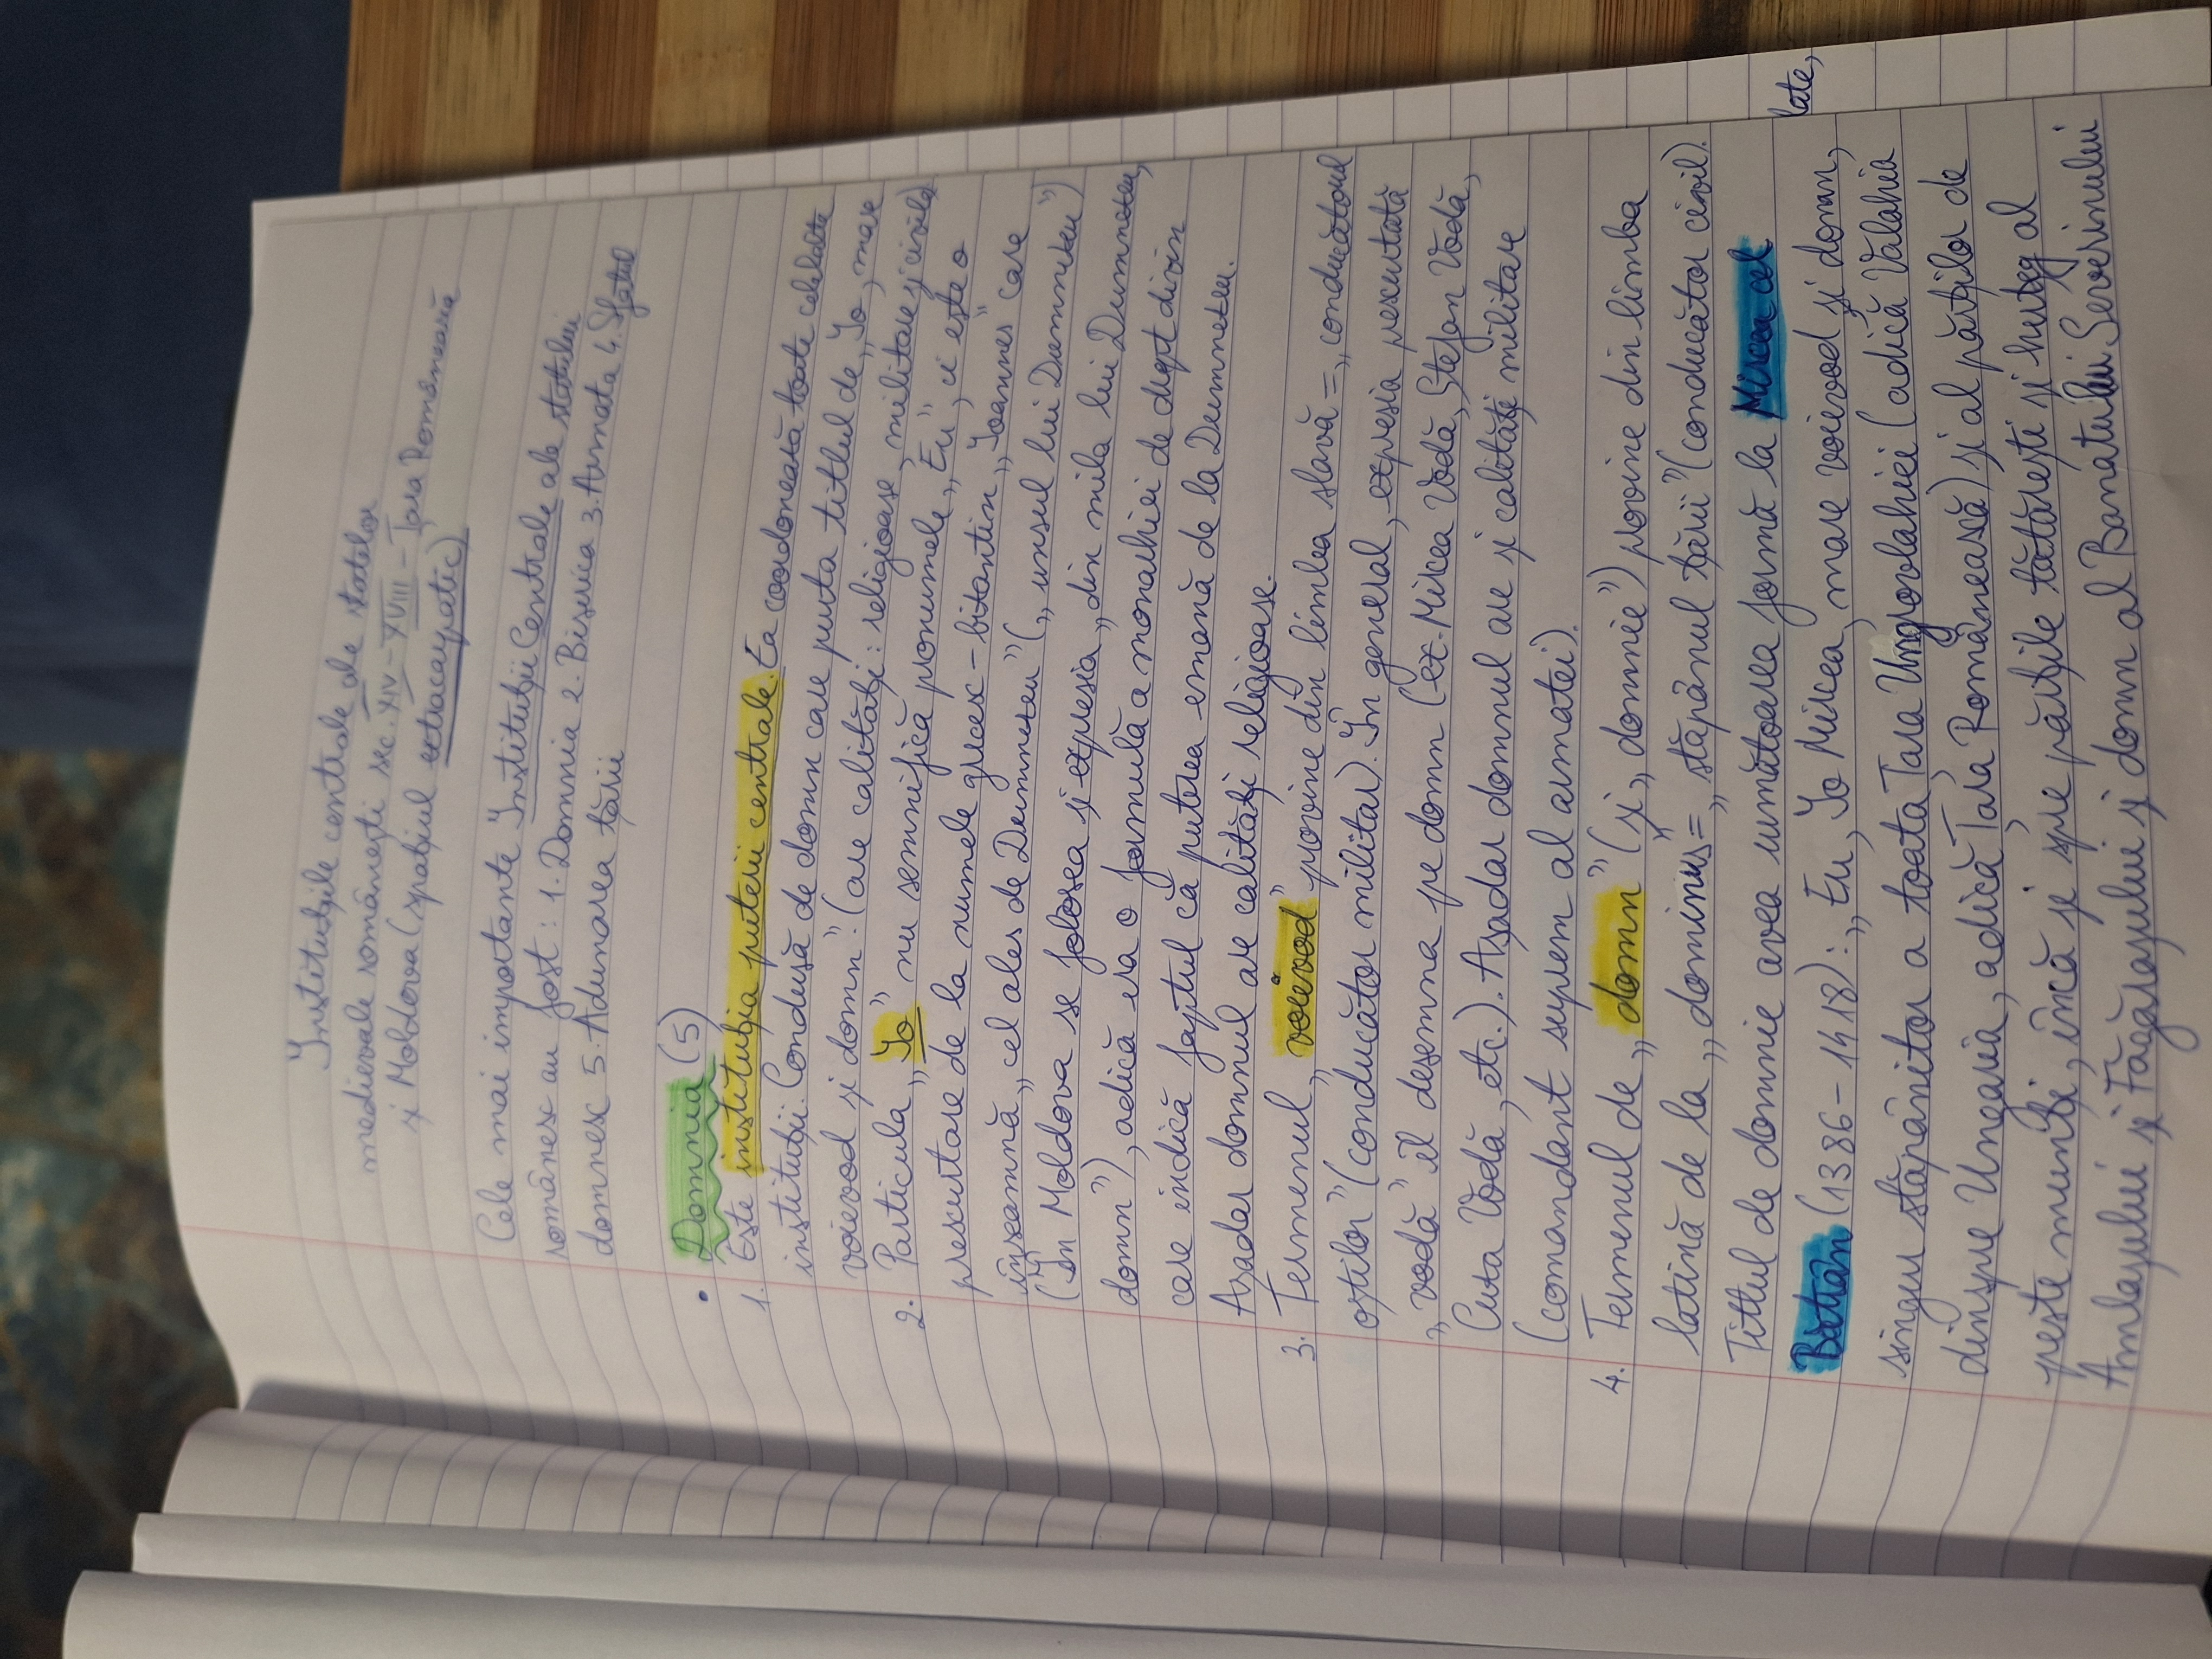 Instituțiile centrale ale statelor
medievale românești sec. XIV - XVIII - Țara Românească
și Moldova (spațiul extracarpatic)
Cele mai importante Instituții Centrale ale statului
românesc au fost: 1. Domnia 2. Biserica 3. Armata 4. Sfatul
domnesc 5. Adunarea țării
• Domnia (5)
1. Este instituția puterii centrale. Ea coordonează toate celelalte
instituții. Condusă de domn care purta titlul de „Io, mare
voievod și domn". (are calități: religioase, militare și civile)
2. Particula „Io" nu semnifică pronumele „Eu", ci este o
prescurtare de la numele grecesc - bizantin „Ioannes" care
înseamnă „cel ales de Dumnezeu" („unsul lui Dumnezeu")
(În Moldova se folosea și expresia „din mila lui Dumnezeu,
domn"), adică era o formulă a monarhiei de drept divin
care indică faptul că puterea emană de la Dumnezeu.
Așadar domnul are calități religioase.
3. Termenul „voievod" provine din limbea slavă = „conducătorul
oștilor" (conducător militar). În general, expresia prescurtată
„vodă" îl desemna pe domn (ex. Mircea Vodă, Ștefan Vodă,
Cuza Vodă, etc.). Așadar domnul are și calități militare
(comandant suprem al armatei).
4. Termenul de „domn" (și „domnie") provine din limba
latină de la „dominus" = „stăpânul țării" (conducător civil).
Titlul de domnie avea următoarea formă la Mircea cel
Bătrân (1386 - 1418): „Eu, Io Mircea, mare voievod și domn,
singur stăpânitor a toata Țara Ungrovlahiei (adică Valahia
dinspre Ungaria, adică Țara Românească) și al părților de
peste munți, încă și spre părțile tătărești și herțeg al
Amlașului și Făgărașului și domn al Banatului Severinului
late,